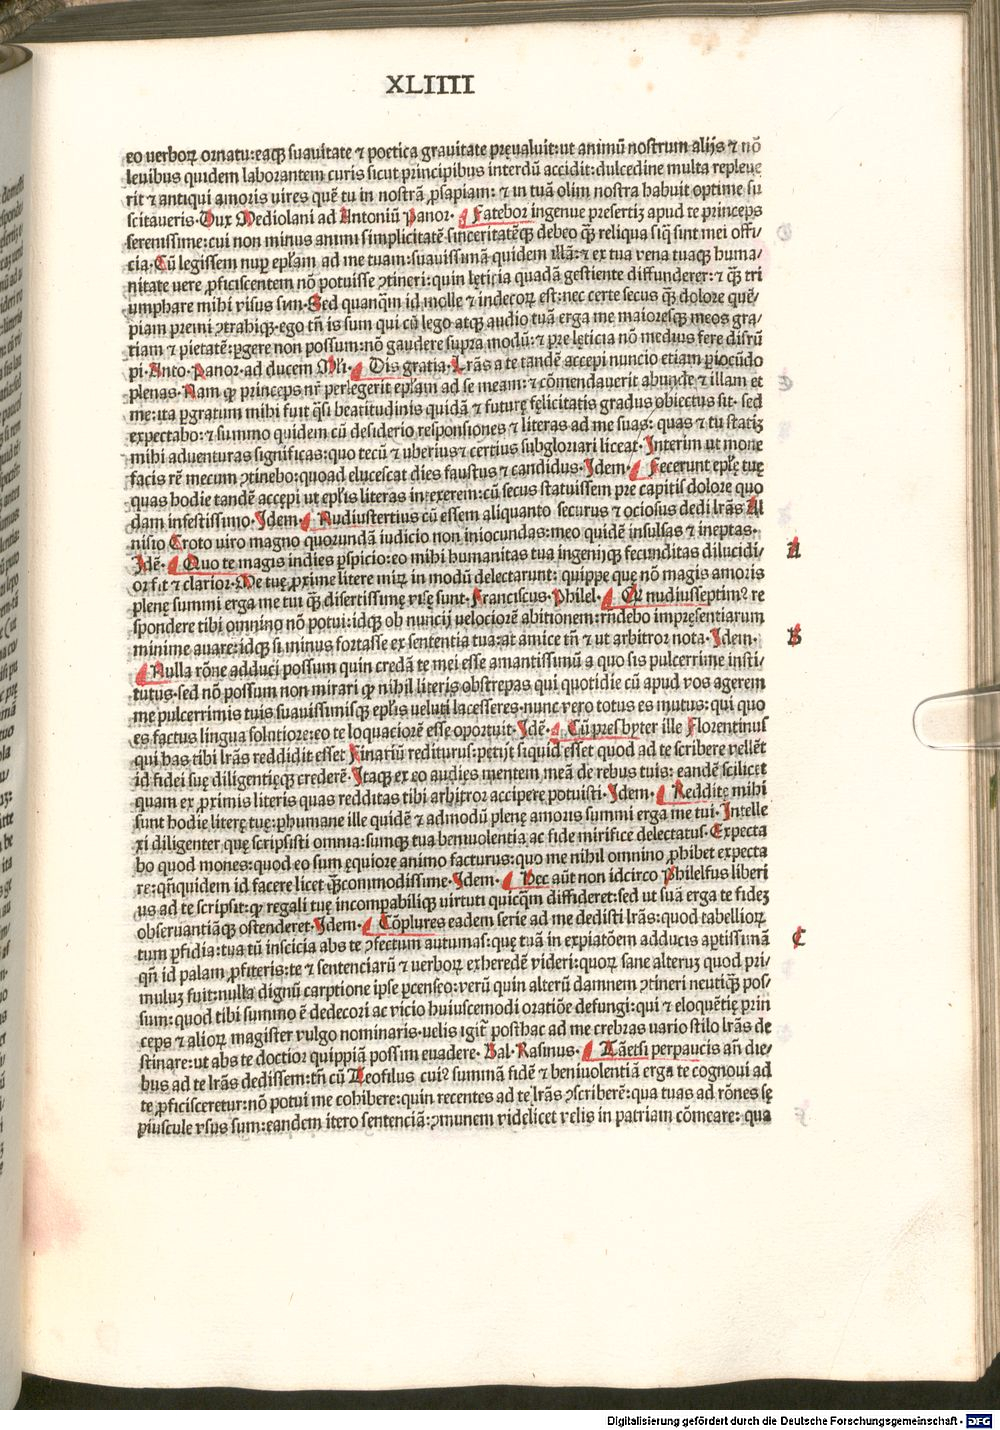 XLIIII
eo uerboꝝ ornatu:eaqꝫ suauitate ⁊ poetica grauitate pręualuit:ut animū nostrum alijs ⁊ nō
leuibus quidem laborantem curis sicut principibus interdū accidit:dulcedine multa repleue
rit ⁊ antiqui amoris uires quē tu in nostrā ꝓsapiam: ⁊ in tuā olim nostra habuit optime su
scitaueris·Dux Mediolani ad Antoniū Panor· Fatebor ingenue presertiꝫ apud te princeps
serenissime:cui non minus animi simplicitatē sinceritatēqꝫ debeo qꝫ̄ reliqua siqꝫ̄ sint mei offi/
cia·Cū legissem nuꝑ epl̄am ad me tuam:suauissimā quidem illā:⁊ ex tua vena tuaqꝫ huma/
nitate uere ꝓficiscentem nō potuisse ꝯtineri:quin lęticia quadā gestiente diffunderer:⁊ qꝫ̄ tri
umphare mihi visus sum·Sed quanqꝫ̄ id molle ⁊ indecoꝝ est:nec certe secus qꝫ̄ dolore quē/
piam premi ꝯtrahiqꝫ·ego tn̄ is sum qui cū lego atqꝫ audio tuā erga me maioresqꝫ meos gra/
tiam ⁊ pietatē:ꝑgere non possum:nō gaudere supra modū:⁊ pre lęticia nō medius fere disrū
pi·Anto·Panor·ad ducem Ml̄i· Dis gratia·Lr̄as a te tandē accepi nuncio etiam ꝑiocūdo
plenas·Nam qꝫ princeps nr̄ perlegerit epl̄am ad se meam:⁊ cōmendauerit abunde ⁊ illam et
me:ita ꝑgratum mihi fuit qͣsi beatitudinis quidā ⁊ futurę fęlicitatis gradus obiectus sit· sed
expectabo:⁊ summo quidem cū desiderio responsiones ⁊ literas ad me suas: quas ⁊ tu statiꝫ
mihi aduenturas significas:quo tecū ⁊ uberius ⁊ certius subgloriari liceat·Interim ut mone
facis rē mecum ꝯtinebo:quoad elucescat dies faustus ⁊ candidus·Idem· Fecerunt epl̄ę tuę
quas hodie tandē accępi ut epl̄is literas intexerem:cū secus statuissem pre capitis dolore quo
dam infestissimo·Idem· Nudiustertius cū essem aliquanto securus ⁊ ociosus dedi lr̄as Al
nisio Croto uiro magno quorundā iudicio non iniocundas:meo quidē insulsas ⁊ ineptas·
Idē· Quo te magis indies ꝑspicio:eo mihi humanitas tua ingenijqꝫ fecunditas dilucidi/
or fit ⁊ clarior·Me tuę ꝓxime litere miꝝ in modū delectarunt: quippe quę nō magis amoris
plenę summi erga me tui qꝫ̄ disertissimę vise sunt·Franciscus Philel· Qꝫ nudiusseptimꝰ re
spondere tibi omnino nō potui:idqꝫ ob nuncij uelociorē abitionem:rn̄debo impręsentiarum
minime auare:idqꝫ si minus fortasse ex sententia tua:at amice tn̄ ⁊ ut arbitror nota·Idem·
Nulla rōne adduci possum quin credā te mei esse amantissimū a quo sis pulcerrime insti/
tutus·sed nō possum non mirari qꝫ nihil literis obstrepas qui quotidie cū apud vos agerem
me pulcerrimis tuis suauissimisqꝫ epl̄is ueluti lacesseres·nunc vero totus es mutus:qui quo
es factus lingua solutiore:eo te loquaciorē esse oportuit·Idē· Cū presbyter ille Florentinus
qui has tibi lr̄as reddidit esset Finariū rediturus:petijt siquid esset quod ad te scribere vellēt
id fidei suę diligentięqꝫ crederē·Itaqꝫ ex eo audies mentem meā de rebus tuis: eandē scilicet
quam ex ꝓximis literis quas redditas tibi arbitror accipere potuisti·Idem· Reddite mihi
sunt hodie literę tuę:ꝑhumane ille quidē ⁊ admodū plenę amoris summi erga me tui·Intelle
xi diligenter quę scripsisti omnia:sumqꝫ tua beniuolentia ac fide mirifice delectatus·Expecta
bo quod mones:quod eo sum ęquiore animo facturus:quo me nihil omnino ꝓhibet expecta
re:qn̄quidem id facere licet qꝫ̄commodissime·Idem· Hec aūt non idcirco Philelfus liberi
us ad te scripsit:qꝫ regali tuę incompabiliqꝫ virtuti quicqꝫ̄ diffideret:sed ut suā erga te fideꝫ
obseruantiāqꝫ ostenderet·Idem· Cōplures eadem serie ad me dedisti lr̄as:quod tabellioꝝ
tum ꝑfidia:tua tū inscicia abs te ꝯfectum autumas:quę tuā in expiatōem adducis aptissimā
qn̄ id palam ꝓfiteris:te ⁊ sentenciarū ⁊ uerboꝝ exheredē videri:quoꝝ sane alteruꝫ quod pri/
muluꝫ fuit:nulla dignū carptione ipse ꝑcenseo:verū quin alterū damnem ꝯtineri neutiqꝫ̄ pos/
sum:quod tibi summo ē dedecori ac vicio huiuscemodi oratiōe defungi:qui ⁊ eloquētię prin
ceps ⁊ alioꝝ magister vulgo nominaris·velis igit᷑ posthac ad me crebras uario stilo lr̄as de
stinare:ut abs te doctior quippiā possim euadere·Bal·Rasinus· Tāetsi perpaucis an̄ die/
bus ad te lr̄as dedissem:tn̄ cū Teofilus cuiꝰ summā fidē ⁊ beniuolentiā erga te cognoui ad
te ꝓficisceretur:nō potui me cohibere:quin recentes ad te lr̄as ꝯscriberē:qua tuas ad rōnes sę
piuscule vsus sum:eandem itero sentenciā:ꝯmunem videlicet velis in patriam cōmeare: qua
A
B
C
Digitalisierung gefördert durch die Deutsche Forschungsgemeinschaft - DFG